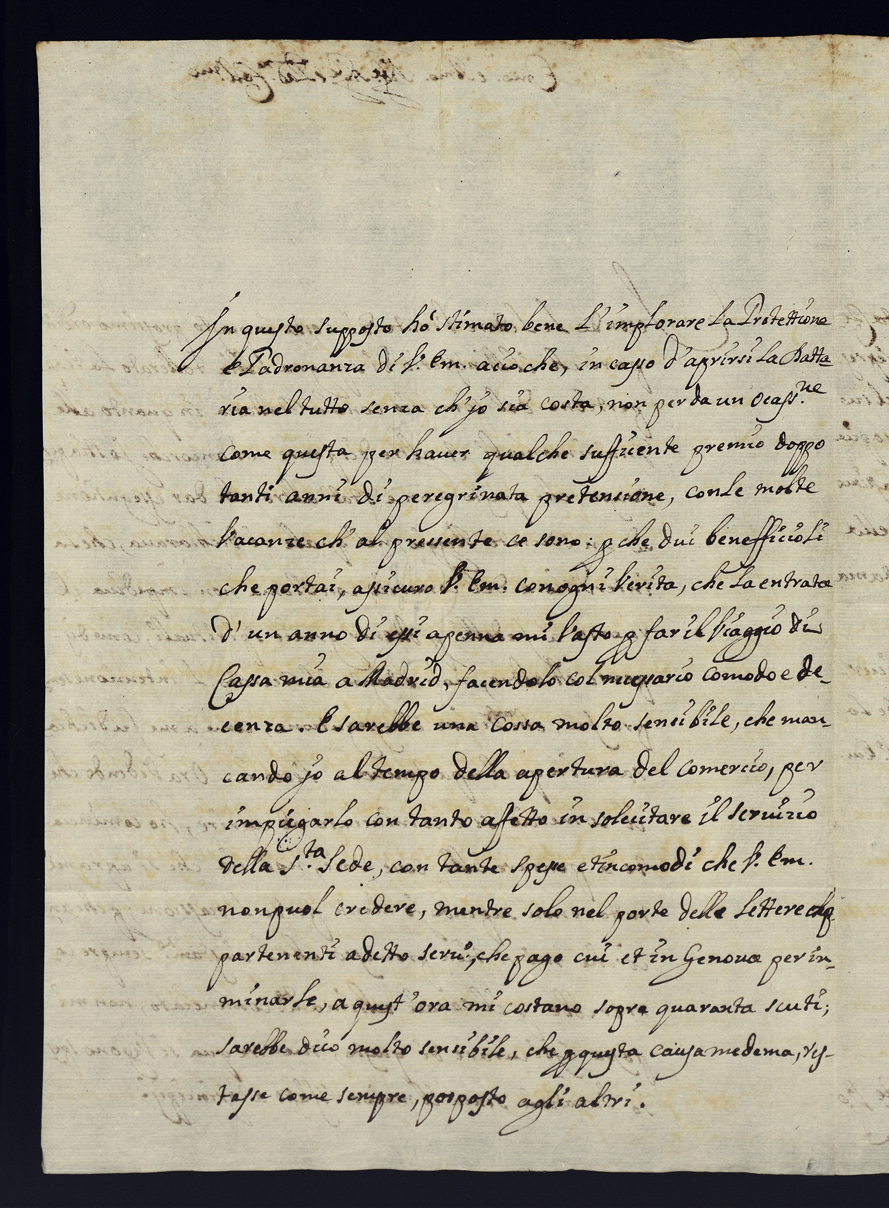 In questo supposto hò stimato bene l'implorare la Protettione
e Padronanza di V. Em. acio che, in casso d'aprirsi la Datta-
ria nel tutto senza ch'jo sia costa, non perda un ocass.ne
come questa per haver qualche sufficiente premio doppo
tanti anni di peregrinata pretencione, con le molte
Vacanze ch'al pressente ce sono: p che dui benefficioli
che portai, assicuro V. Em. con ogni Verita, che la entrata
d'un anno di essi apenna mi basto p far il Viaggio di
Cassa mia a Madrid, facendolo col necessario comodo e de-
cenza. E sarebbe una cossa molto sensibile, che man-
cando jo al tempo della apertura del comercio, per
impiegarlo con tanto affetto in solecitare il servizio
della S.ta Sede, con tante spese et incomodi che V. Em.
non puol credere, mentre solo nel porte delle lettere ap-
partenenti a detto serv.o, che pago cui et in Genova per in-
minarle, a quest'ora mi costano sopra quaranta scuti;
sarebbe dico molto sensibile, che p questa causa medema, res-
tasse come sempre, posposto agli altri.